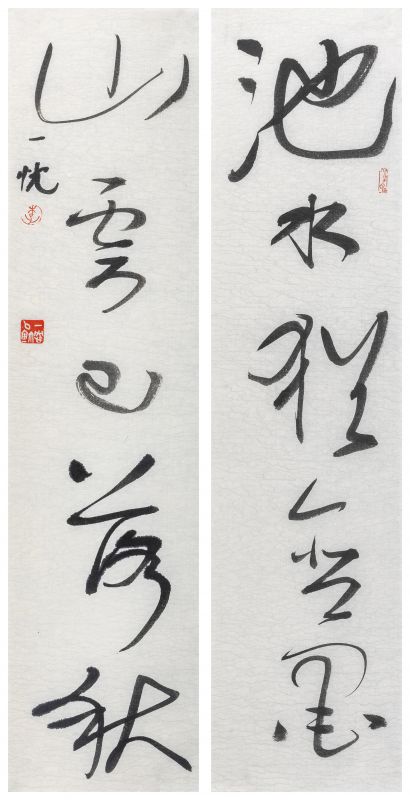 池水猶含墨
山雲已落秋
一忱